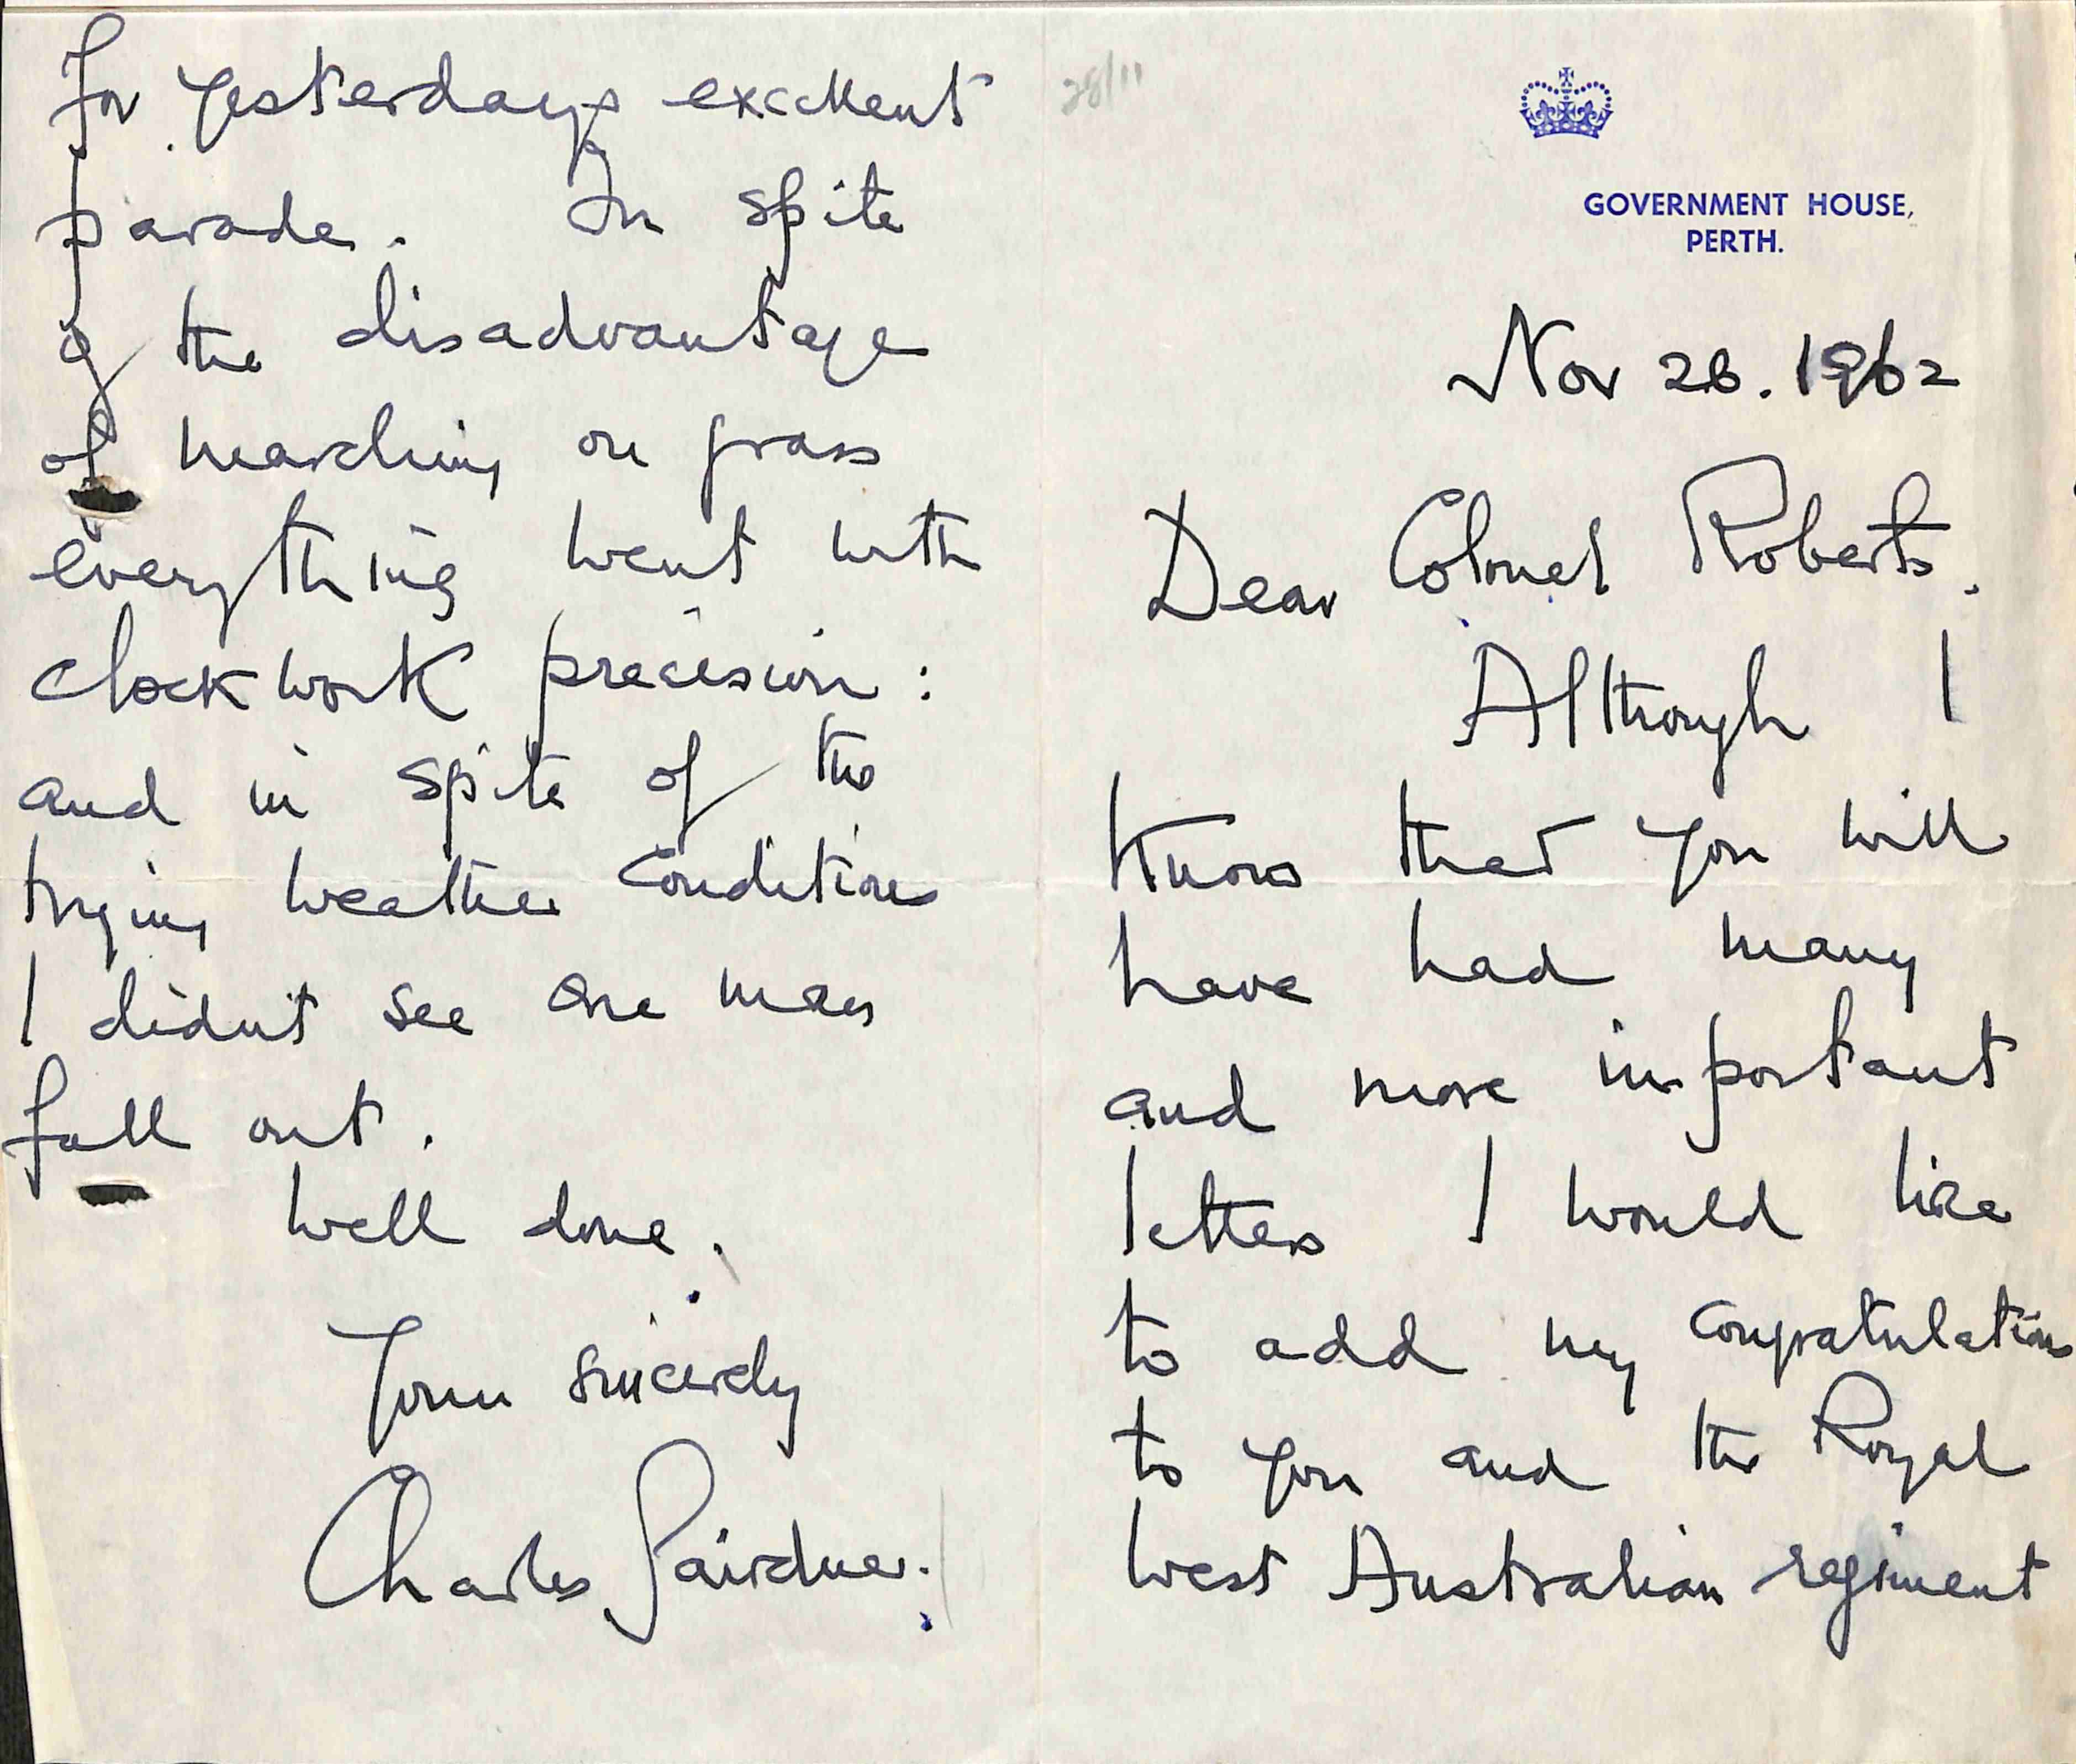 28/11
GOVERNMENT HOUSE,
PERTH.
Nov 28. 1962
Dear Colonel Roberts.
Although I
know that you will
have had many
and more important
letters I would like
to add my congratulations
to you and the Royal
West Australian regiment
for yesterdays excellent
parade. In spite
of the disadvantage
of marching on grass
everything went with
clockwork precision :
and in spite of the
trying weather conditions
I didnt see one man
fall out.
Well done.
Yours sincerely
Charles Gairdner.